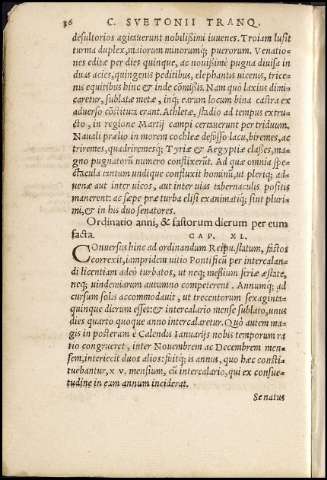 36 C. SVETONII TRANQ.
desultorios agitauerunt nobilissimi iuuenes. Troiam lusit
turma duplex, maiorum minorumq; puerorum. Venatio-
nes editæ per dies quinque, ac nouissimè pugna diuisa in
duas acies, quingenis peditibus, elephantis uicenis, trice-
nis equitibus hinc & inde cōmissis. Nam quo laxius dimi-
caretur, sublatæ metæ, inq; earum locum bina castra ex
aduerso cōstituta erant. Athletæ, stadio ad tempus extru-
cto, in regione Martij campi certauerunt per triduum.
Nauali prælio in morem cochleæ defosso lacu, biremes, ac
triremes, quadriremesq; Tyriæ & Aegyptiæ classes, ma-
gno pugnatorū numero conflixerūt. Ad quæ omnia spe-
ctacula tantum undique confluxit hominū, ut pleriq; ad-
uenæ aut inter uicos, aut inter uias tabernaculis positis
manerent: ac sæpe præ turba elisi exanimatiq; sint pluri-
mi, & in his duo senatores.
Ordinatio anni, & fastorum dierum per eum
facta. CAP. XL.
COnuersus hinc ad ordinandum Reipu. statum, fastos
correxit, iampridem uitio Pontificū per intercalan-
di licentiam adeò turbatos, ut neq; messium feriæ æstate,
neq; uindemiarum autumno competerent. Annumq; ad
cursum solis accommodauit, ut trecentorum sexaginta-
quinque dierum esset: & intercalario mense sublato, unus
dies quarto quoque anno intercalaretur. Quò autem ma-
gis in posterum è Calendis Ianuarijs nobis temporum ra
tio congrueret, inter Nouembrem ac Decembrem men-
sem, interiecit duos alios: fuitq; is annus, quo hæc consti-
tuebantur, x v. mensium, cū intercalario, qui ex consue-
tudine in eum annum inciderat.
Senatus